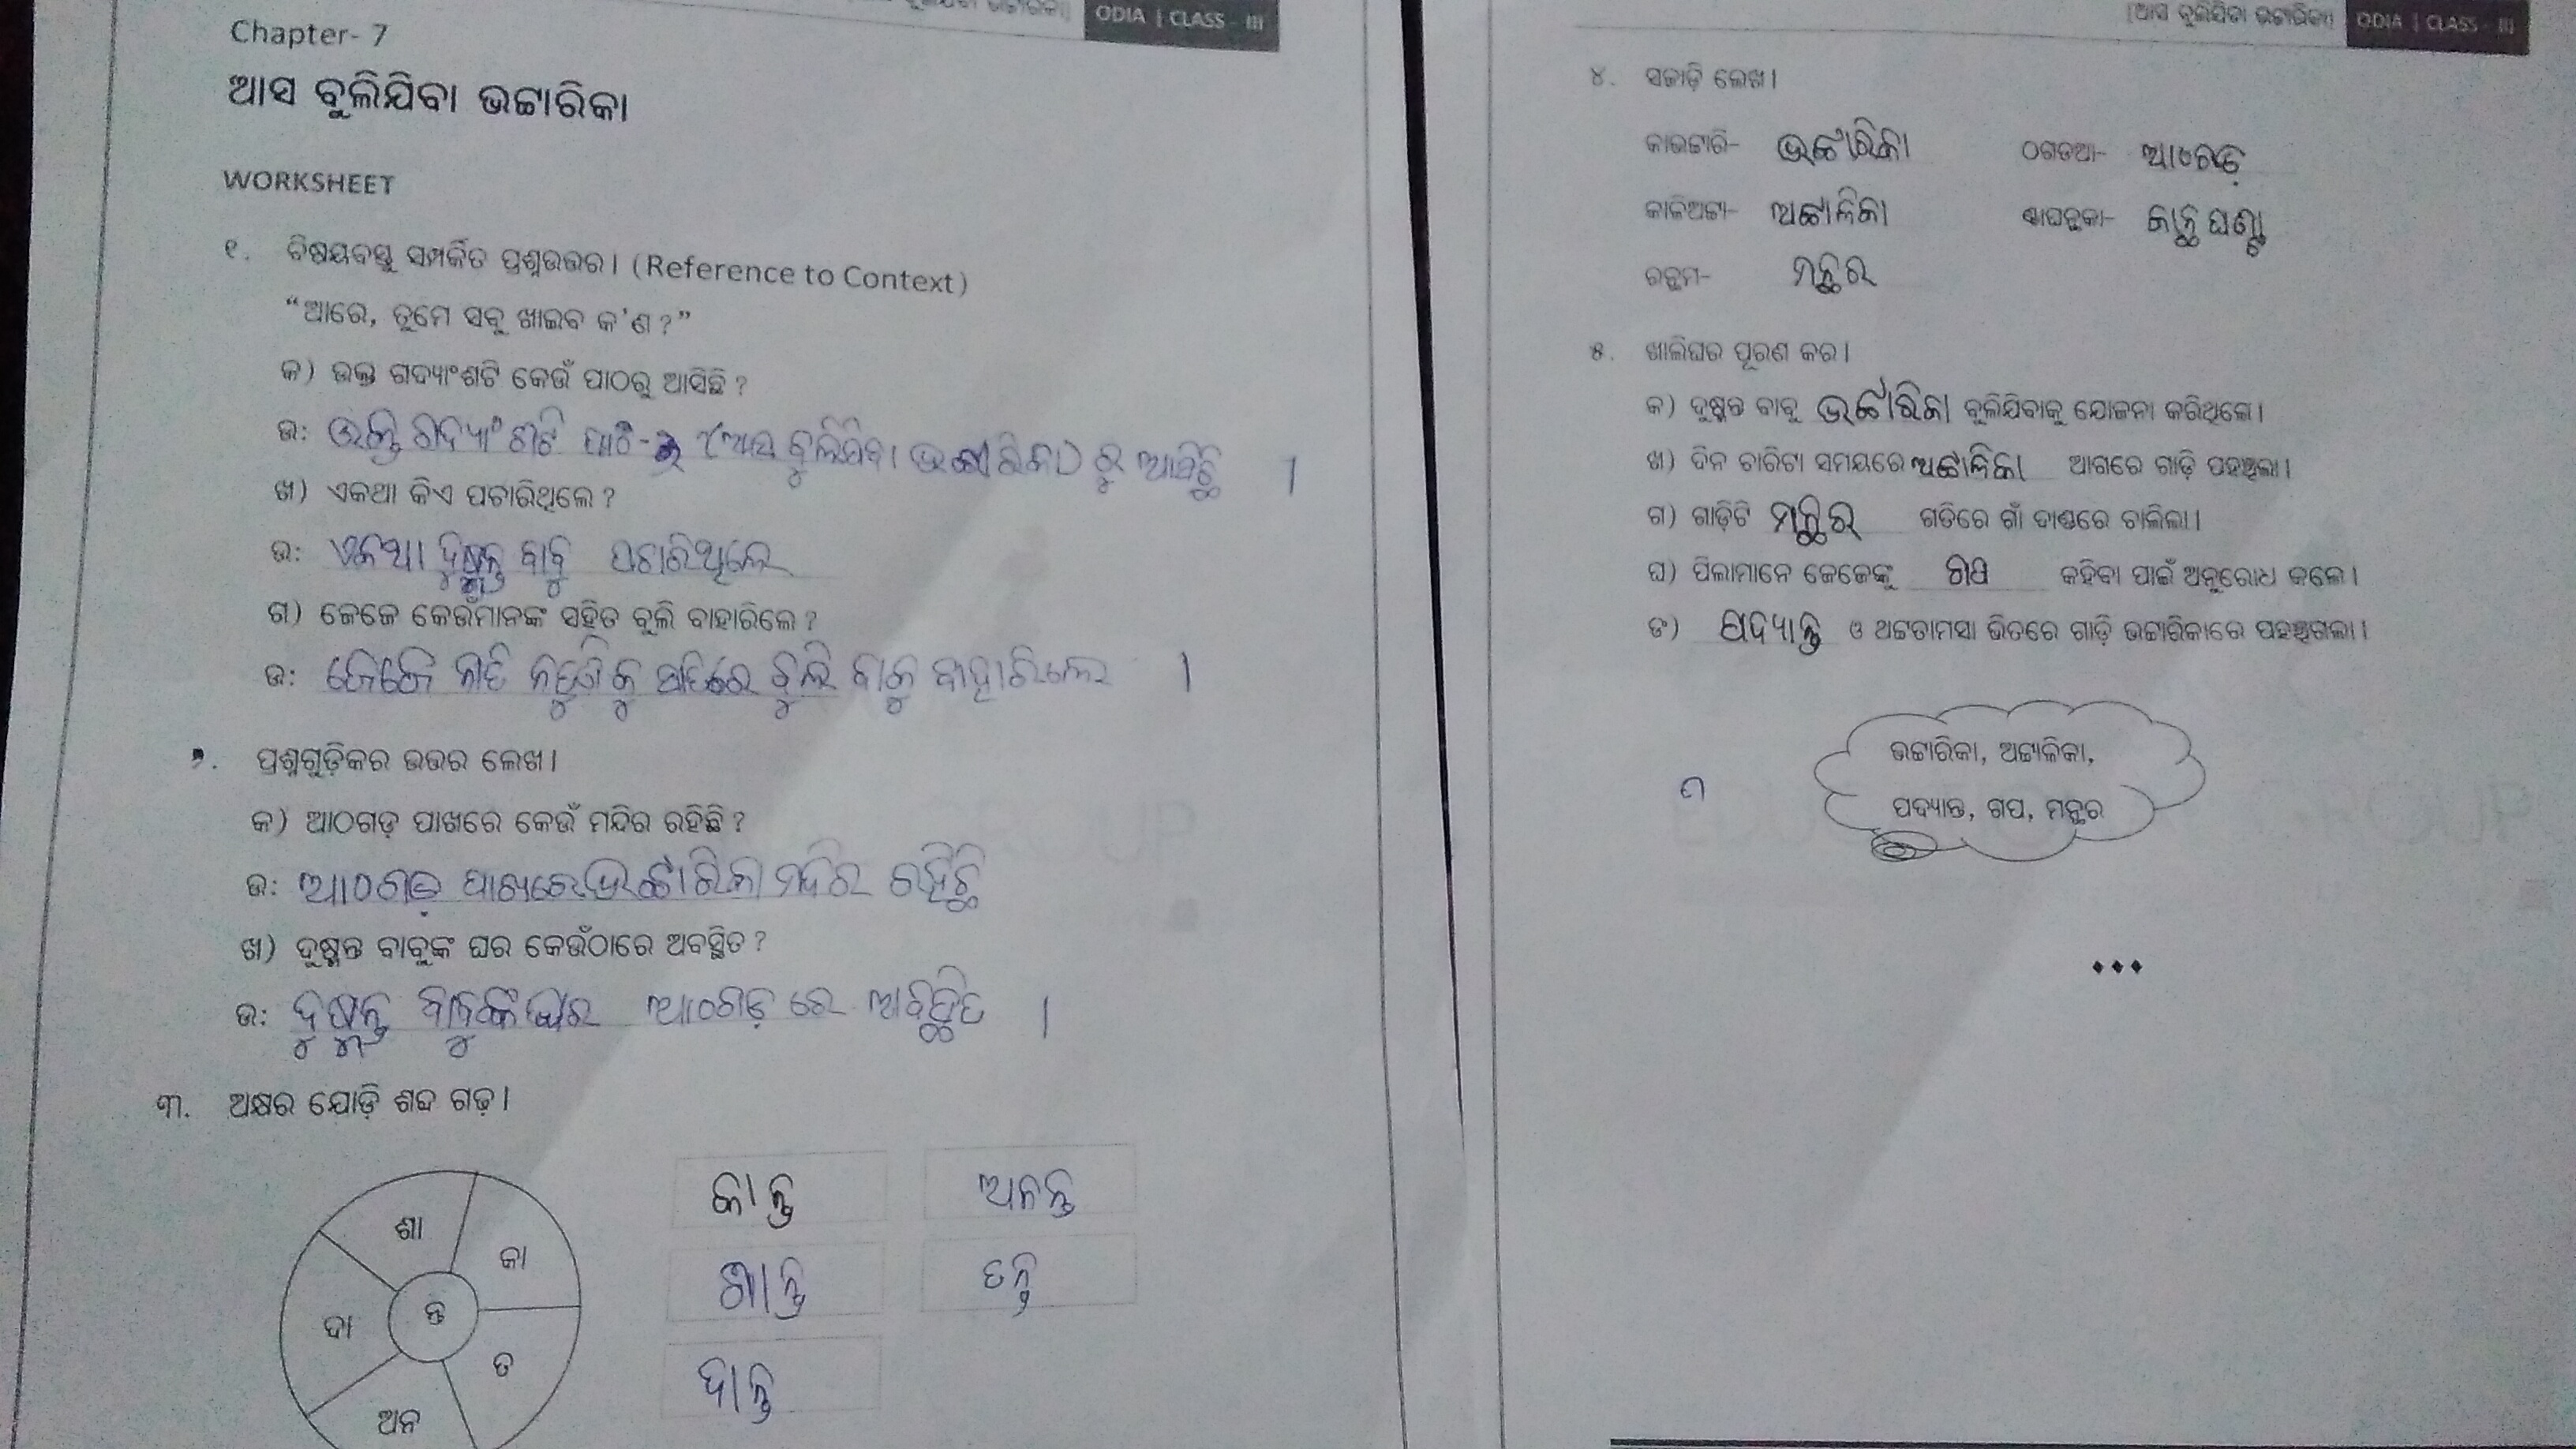 ବୁଲିଯିବା ଭଟ୍ଟାରିକା] ODIA | CLASS - III
Chapter- 7
ଆସ ବୁଲିଯିବା ଭଟ୍ଟାରିକା
WORKSHEET
୧. ବିଷୟବସ୍ତୁ ସମ୍ପର୍କିତ ପ୍ରଶ୍ନଉତ୍ତର। (Reference to Context)
“ଆରେ, ତୁମେ ସବୁ ଖାଇବ କ'ଣ ?”
କ) ଉକ୍ତ ଗଦ୍ୟାଂଶଟି କେଉଁ ପାଠରୁ ଆସିଛି ?
ଉ: ଉକ୍ତି ଗଦ୍ୟାଂଶଟି ପାଠ- (ଆସ ବୁଲିଯିବା ଭଟ୍ଟାରିକା) ରୁ ଆସିଛି ।
ଖ) ଏକଥା କିଏ ପଚାରିଥିଲେ ?
ଉ: ଏକଥା ଦୁଷ୍ମନ୍ତ ବାବୁ ପଚାରିଥିଲେ
ଗ) ଜେଜେ କେଉଁମାନଙ୍କ ସହିତ ବୁଲି ବାହାରିଲେ ?
ଉ: ଜେଜେ ନାତି ବୁଲି ବାକୁ ବାହାରିଲେ ।
୨. ପ୍ରଶ୍ନଗୁଡ଼ିକର ଉତ୍ତର ଲେଖ।
କ) ଆଠଗଡ଼ ପାଖରେ କେଉଁ ମନ୍ଦିର ରହିଛି ?
ଉ: ଆଠଗଡ଼ ପାଖରେ ଭଟ୍ଟାରିକା ମନ୍ଦିର ରହିଛି
ଖ) ଦୁଷ୍ମନ୍ତ ବାବୁଙ୍କ ଘର କେଉଁଠାରେ ଅବସ୍ଥିତ ?
ଉ: ଦୁଷ୍ମନ୍ତ ବାବୁଙ୍କ ଘର ଆଠଗଡ଼ ରେ ।
୩. ଅକ୍ଷର ଯୋଡ଼ି ଶବ୍ଦ ଗଢ଼।
ଶା
କା
ଦା
ନ୍ତ
ତ
ଅନ
କାନ୍ତ ଅନନ୍ତ
ଶାନ୍ତ ତନ୍ତ
ଦାନ୍ତ
[ଆସ ବୁଲିଯିବା ଭଟ୍ଟାରିକା] ODIA | CLASS - III
୪. ସଜାଡ଼ି ଲେଖ।
କାଭଟ୍ଟାରି- ଭଟ୍ଟାରିକା ଠଗଡଆ- ଆଠଗଡ଼
କାଳିଅଟ୍ଟା- ଅଟ୍ଟାଳିକା ଣ୍ଟାଘନ୍ଥକା- କାନ୍ଥ ଘଣ୍ଟା
ରନ୍ଥମ- ମନ୍ଥର
୫. ଖାଲିଘର ପୂରଣ କର।
କ) ଦୁଷ୍ମନ୍ତ ବାବୁ ଭଟ୍ଟାରିକା ବୁଲିଯିବାକୁ ଯୋଜନା କରିଥିଲେ।
ଖ) ଦିନ ଚାରିଟା ସମୟରେ ଅଟ୍ଟାଳିକା ଆଗରେ ଗାଡ଼ି ପହଞ୍ଚିଲା।
ଗ) ଗାଡ଼ିଟି ମନ୍ଥର ଗତିରେ ଗାଁ ଦାଣ୍ଡରେ ଚାଲିଲା।
ଘ) ପିଲାମାନେ ଜେଜେଙ୍କୁ ଗପ କହିବା ପାଇଁ ଅନୁରୋଧ କଲେ।
ଙ) ପଦ୍ୟାନ୍ତ ଓ ଥଟ୍ଟାତାମସା ଭିତରେ ଗାଡ଼ି ଭଟ୍ଟାରିକାରେ ପହଞ୍ଚିଗଲା।
ଭଟ୍ଟାରିକା, ଅଟ୍ଟାଳିକା,
ପଦ୍ୟାନ୍ତ, ଗପ, ମନ୍ଥର